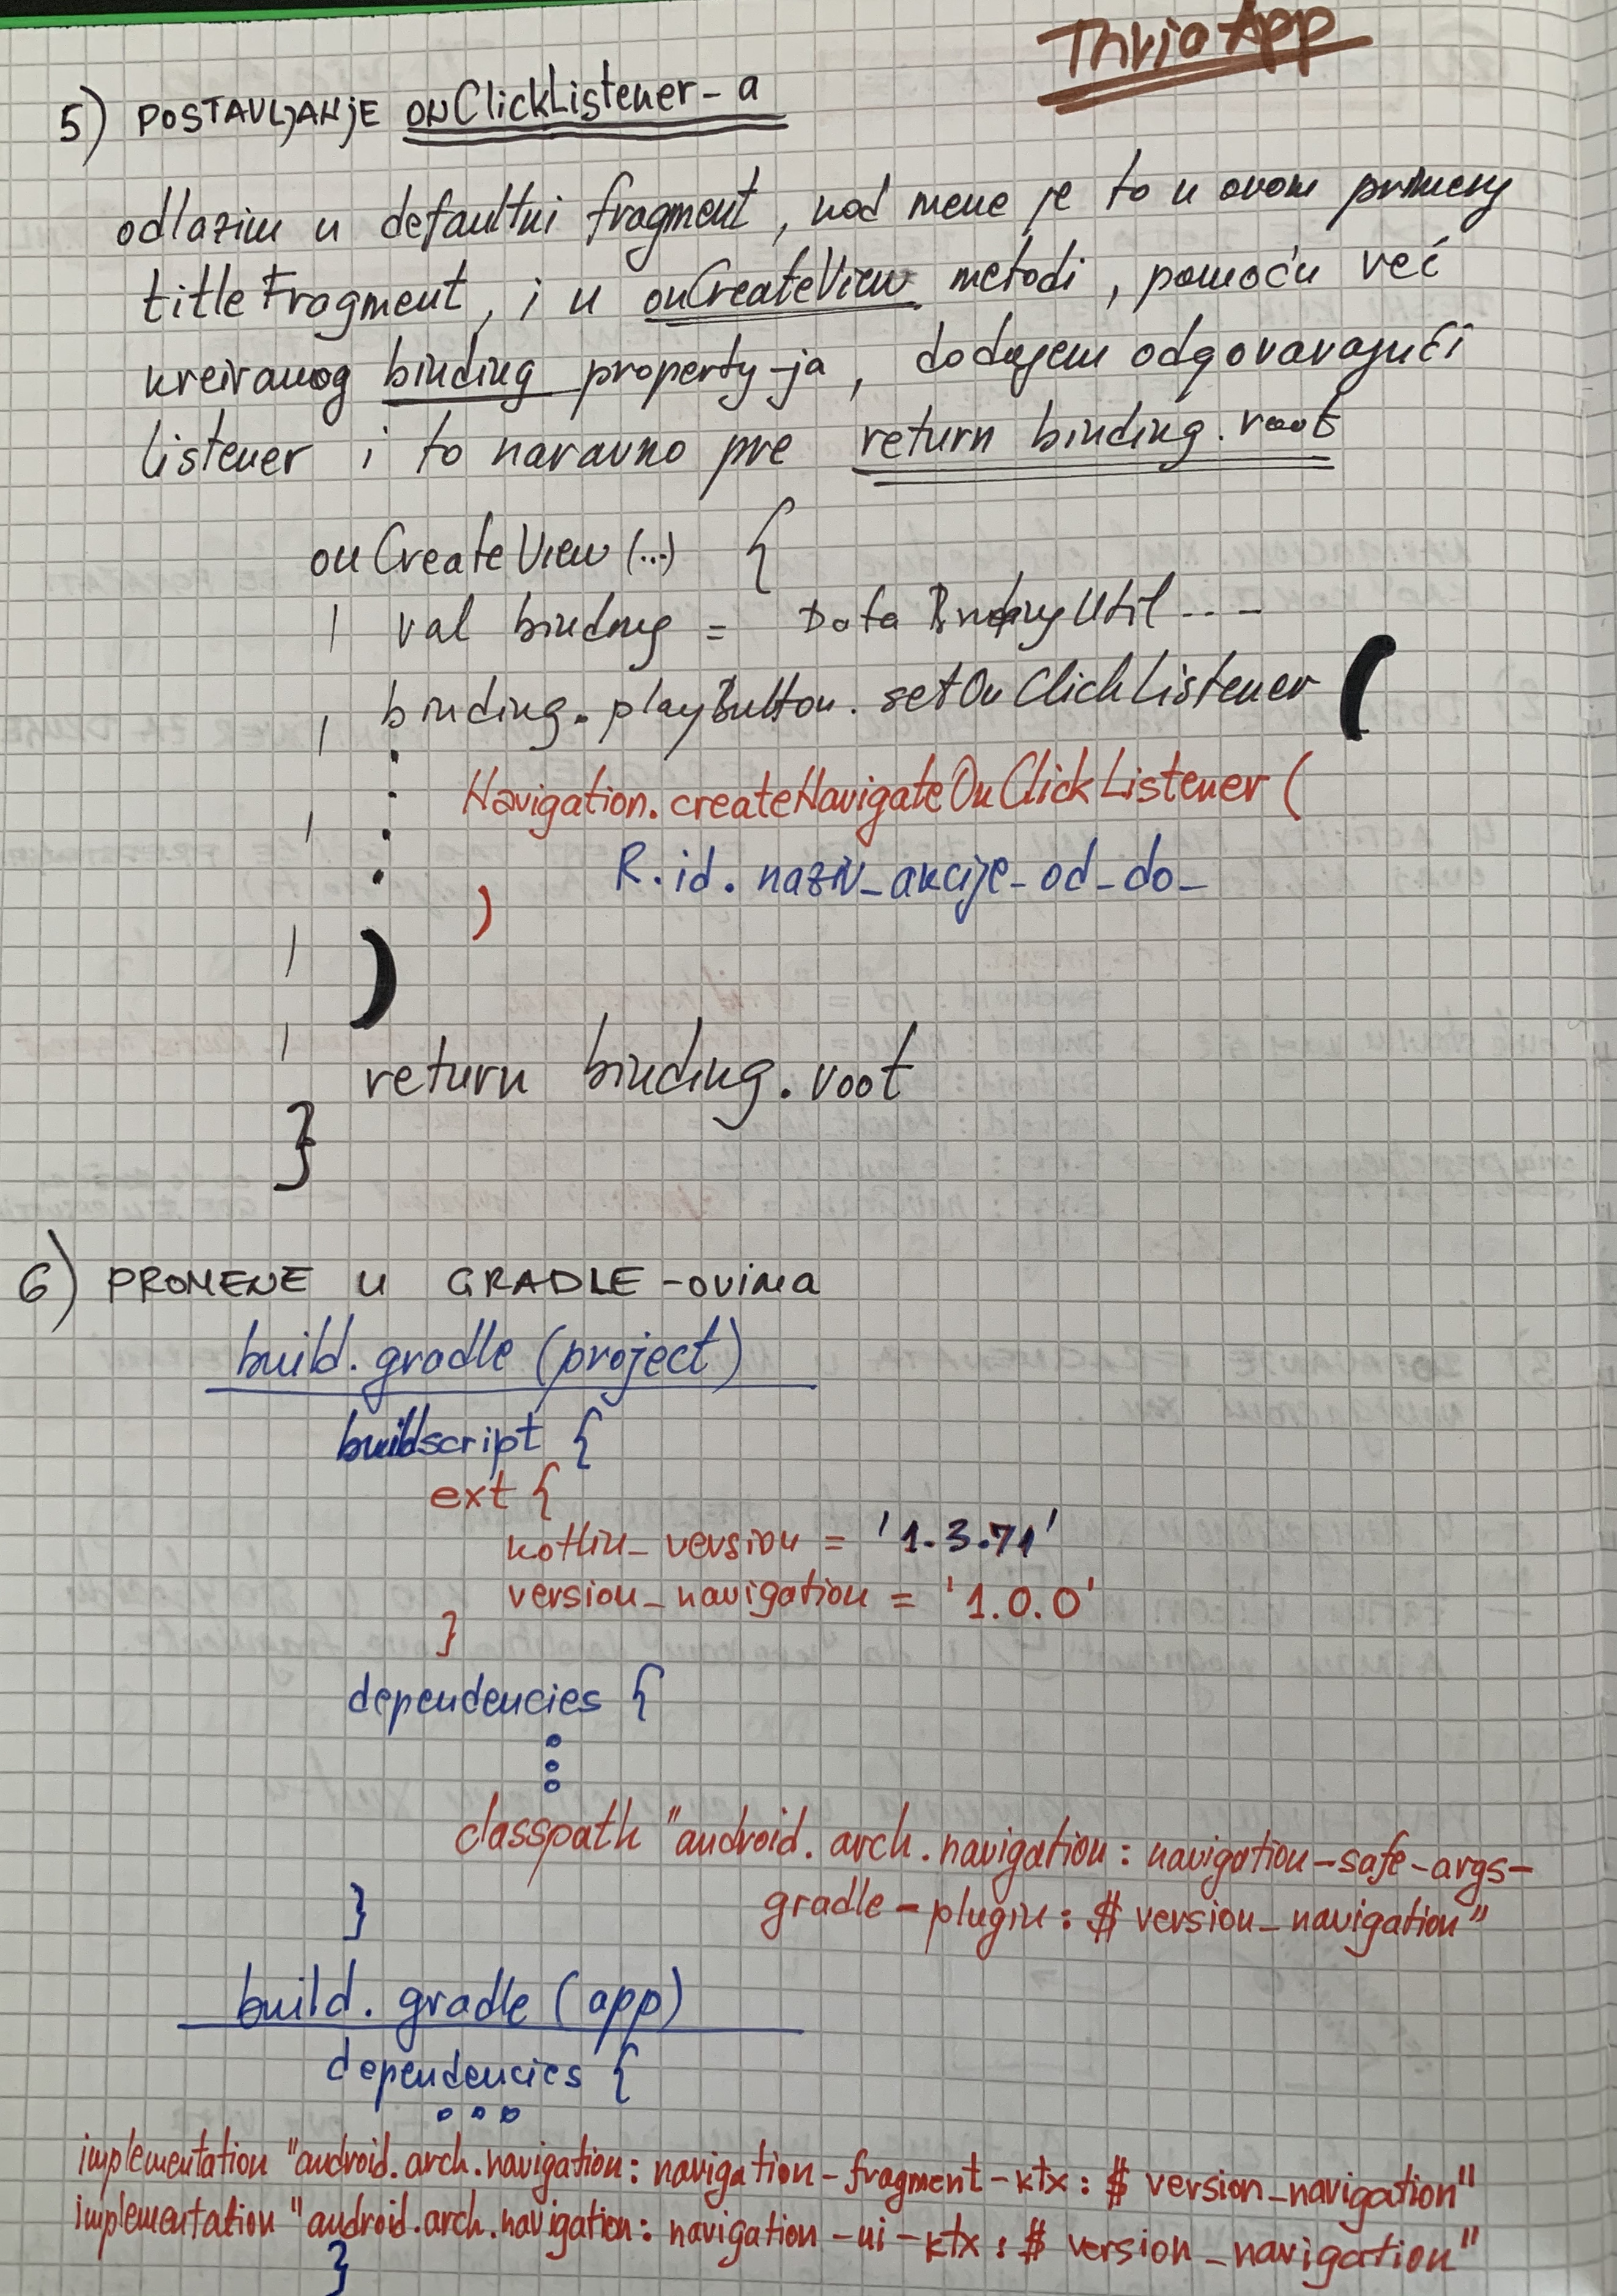 ThriaApp
5) POSTAVLJANJE ONClickListener-a
odlazim u defaultni fragment, kod mene je to u ovom primeru
titleFragment, i u onCreateView metodi, pomoću već
kreiranog binding property-ja, dodajem odgovarajući
listener i to naravno pre return binding.root
onCreateView(...) {
val binding = DataBindingUtil....
binding.playButton.setOnClickListener (
Navigation.createNavigateOnClickListener (
R.id.naziv_akcije_od_do_
)
)
return binding.root
}
6) PROMENE U GRADLE-ovima
build.gradle (project)
buildscript {
ext {
kotlin_version = '1.3.71'
version_navigation = '1.0.0'
}
dependencies {
classpath "android.arch.navigation:navigation-safe-args-
gradle-plugin:$version_navigation"
}
build.gradle (app)
dependencies {
...
implementation "android.arch.navigation:navigation-fragment-ktx:$version_navigation"
implementation "android.arch.navigation:navigation-ui-ktx:$version_navigation"
}